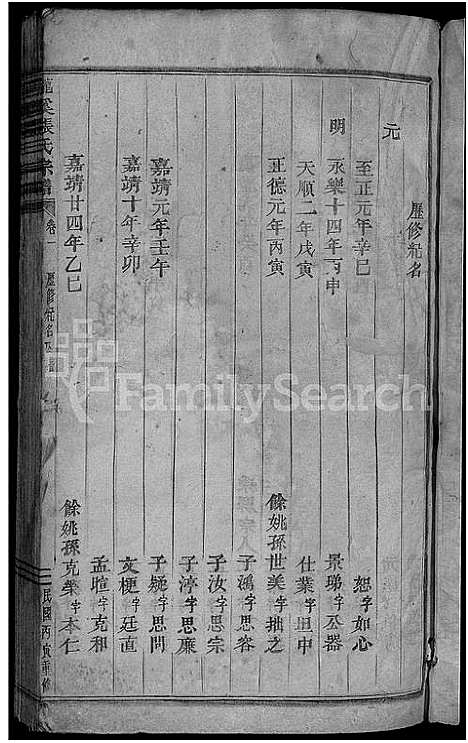 歷修紀名
元
至正元年辛巳 恕字如心
明
永樂十四年丙申 景瑒字公器
天順二年戊寅 仕業字坦中
正德元年丙寅 餘姚孫世美字拙之
子鴻字思容
子汝字思宗
子渟字思廉
嘉靖元年壬午 子疑字思問
嘉靖十年辛卯 文梗字廷直
孟暄字克和
嘉靖廿四年乙巳 餘姚孫克榮字本仁
張氏宗譜 卷一 歷修紀名 民國丙寅重修
FamilySearch